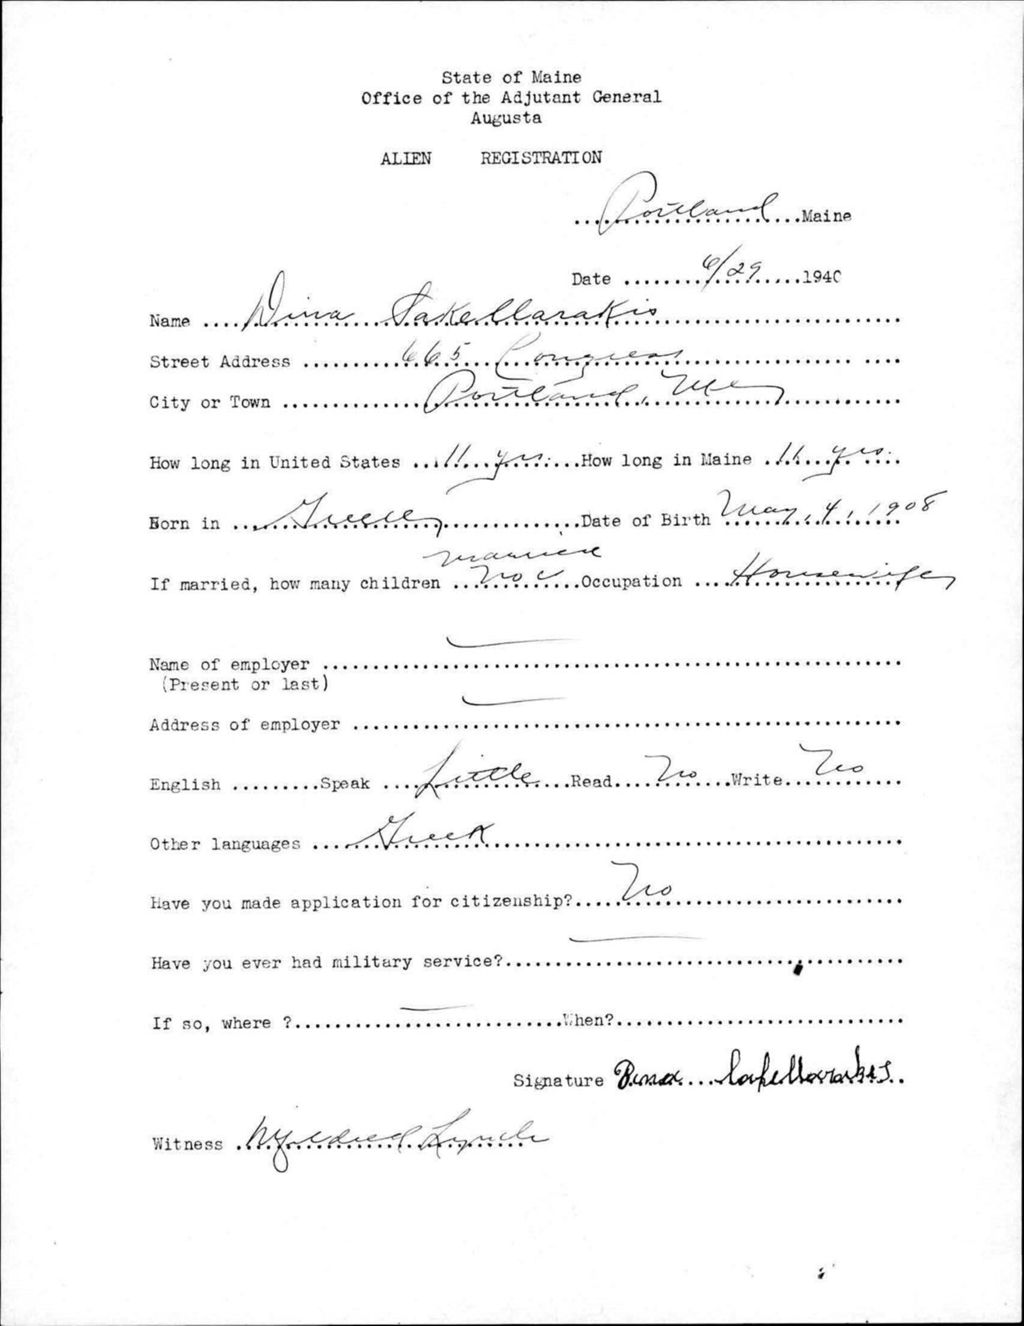 State of Maine
Office of the Adjutant General
Augusta
ALIEN REGISTRATION
Portland Maine
Date 6/29 1940
Name Dina Sakellarakis
Street Address 665 Congress
City or Town Portland, Me
How long in United States 11 yrs. How long in Maine 11 yrs.
Born in Greece Date of Birth May 4, 1908
married
If married, how many children No c Occupation Housewife
Name of employer
(Present or last)
Address of employer
English Speak Little Read No Write No
Other languages Greek
Have you made application for citizenship? No
Have you ever had military service?
If so, where ? When?
Signature Dina Sakellarakis
Witness Mildred Lynch